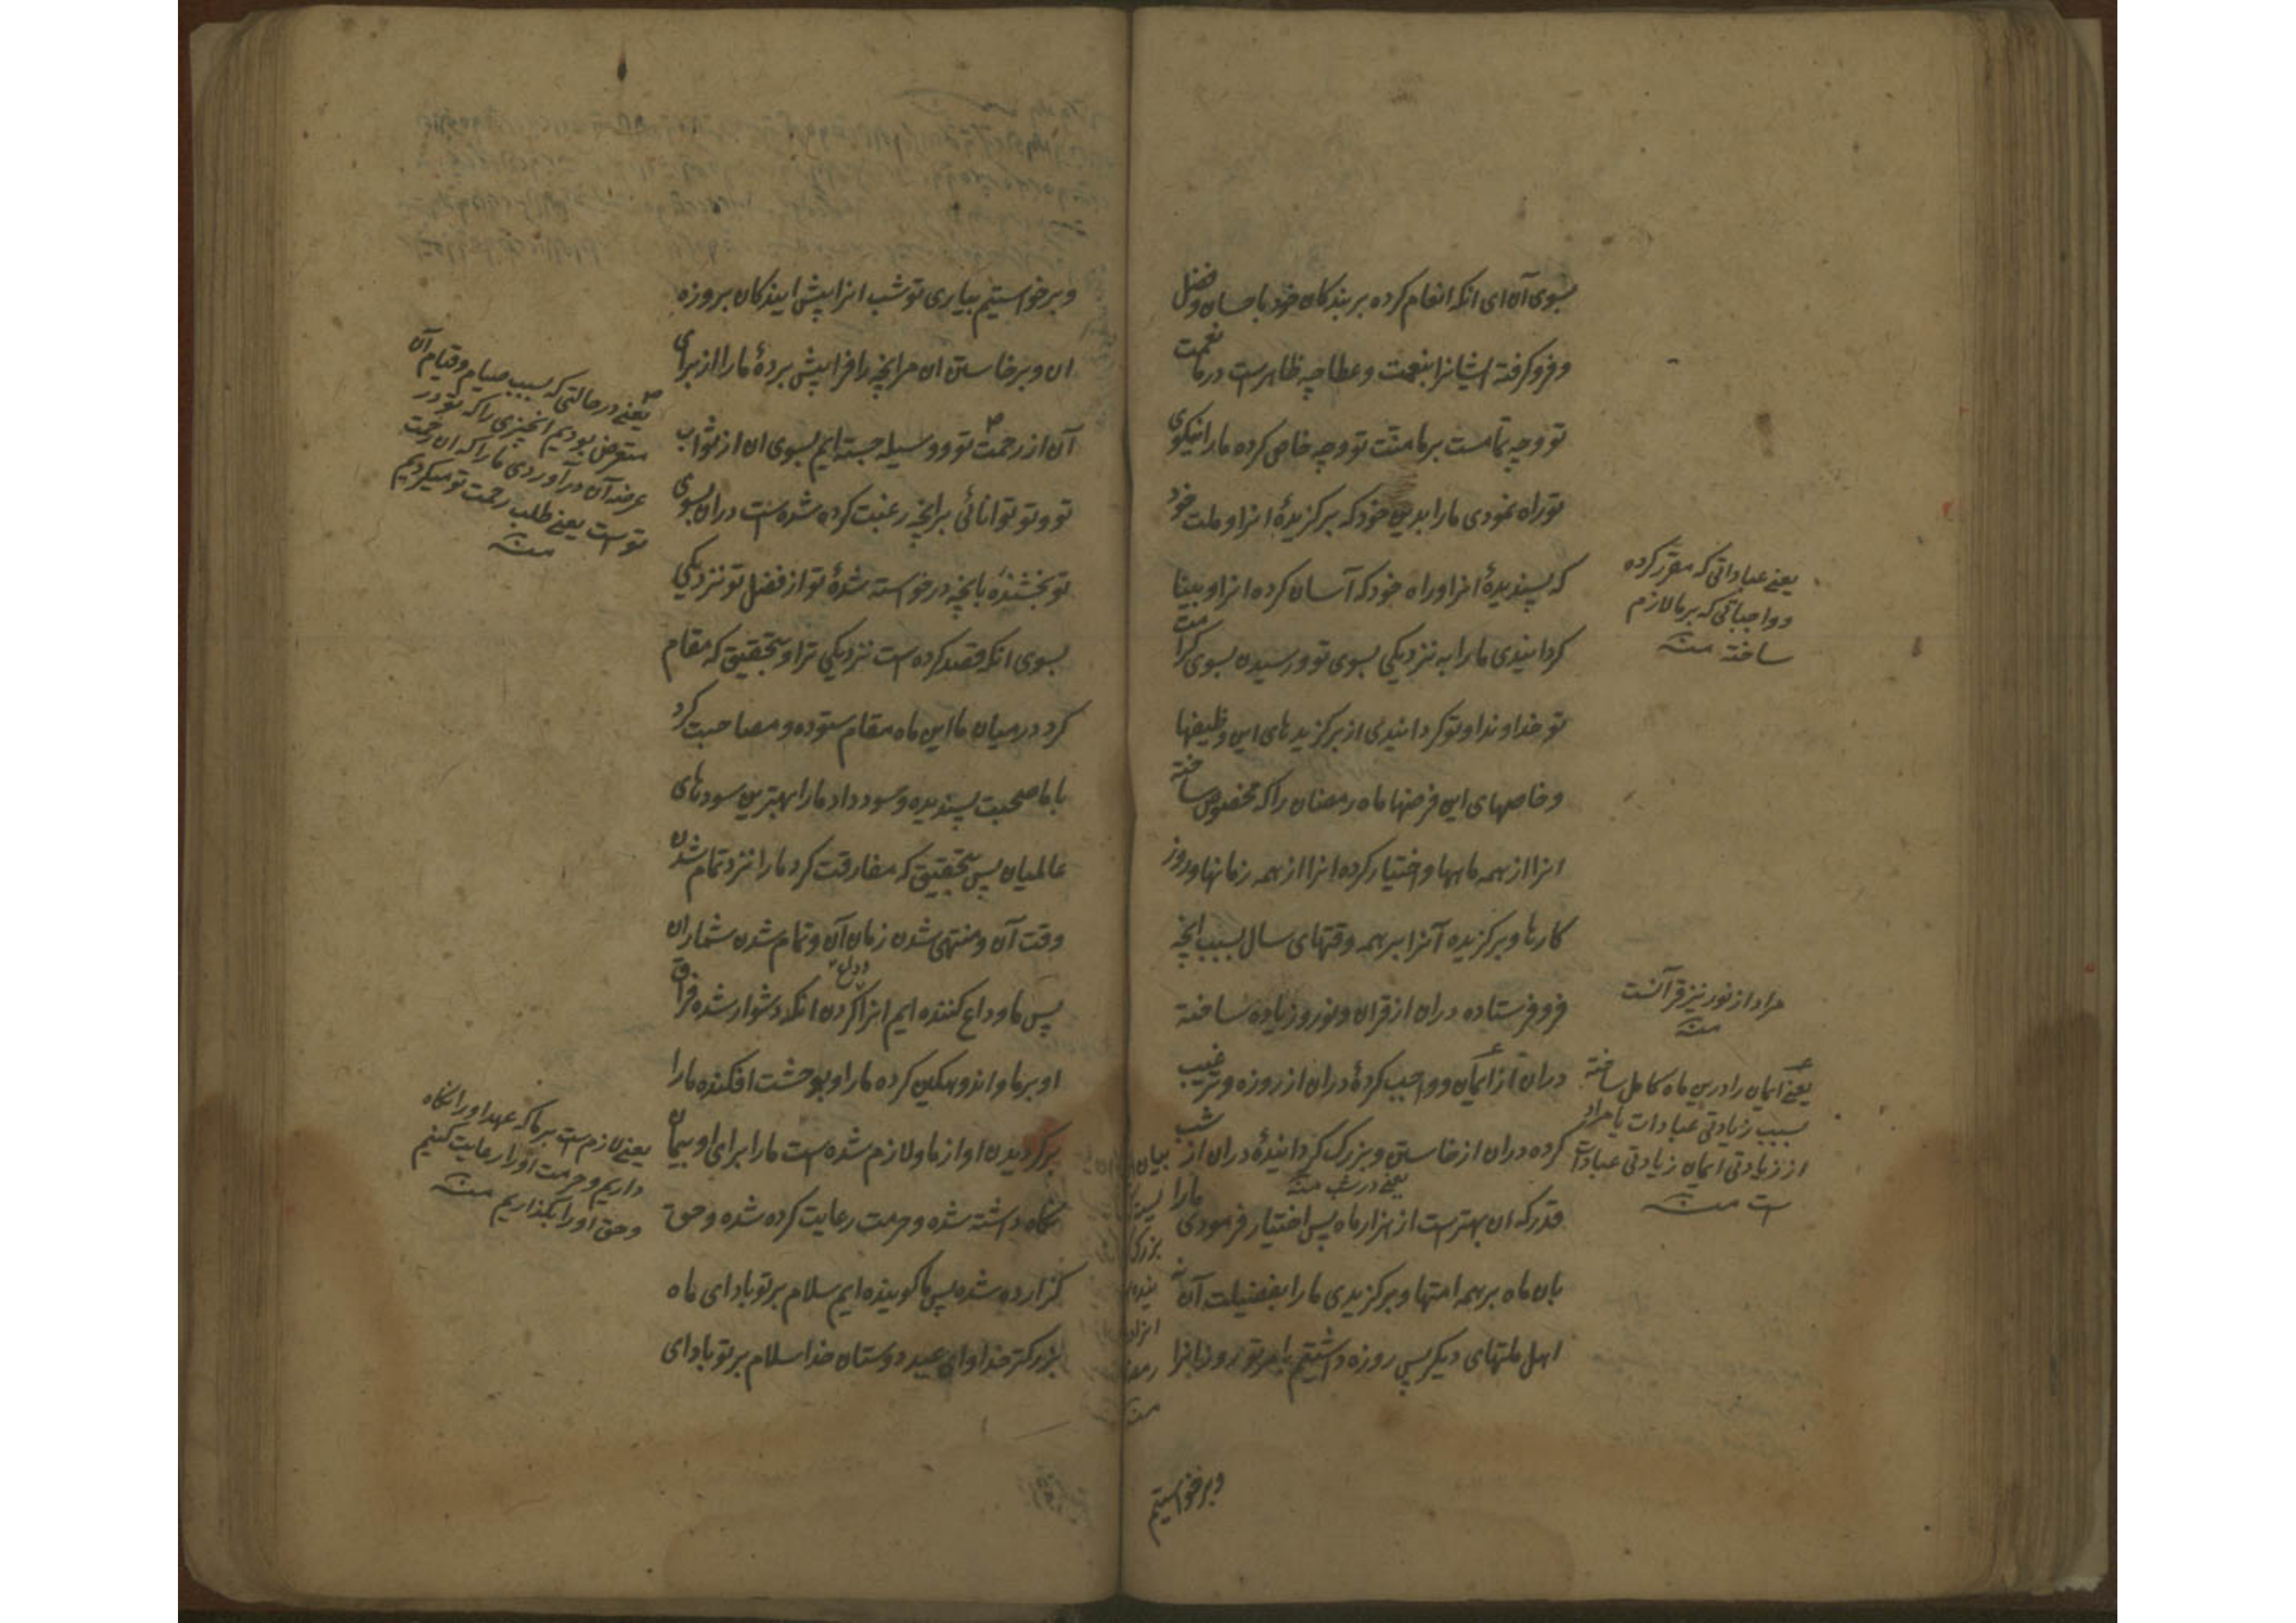 بسوی آن ای انکه انعام کرده بر بندکان خود باحسان و فضل
و فرو کرفته ایشانرا بنعمت و عطا چه ظاهرست در ما نعمت
تو و چه تمامست بر ما منّت تو و چه خاص کرده ما را نیکوی
تو راه نمودی ما را بدین خود که برکزیدهٔ انرا و ملت خود
که پسندیدهٔ انرا و راه خود که آسان کرده انرا و بینا
کردانیدی ما را به نزدیکی بسوی تو و رسیدن بسوی کرامت
تو خداوندا و تو کردانیدی از برکزیدهای این وظیفها
و خاصهای این فرضها ماه رمضان را که مخصوص ساخته
انرا از همه ماهها و اختیار کرده انرا از همه زمانها و روز
کارها و برکزیده آنرا بر همه وقتهای سال بسبب انچه
فرو فرستاده دران از قران و نور و زیاده ساخته
دران از ایمان و واجب کردهٔ دران از روزه و ترغیب
کرده دران از خاستن و بزرک کردانیدهٔ دران از شب
قدر که ان بهترست از هزار ماه پس اختیار فرمودی ما را
بان ماه بر همه امتها و برکزیدی ما را بفضیلت آن نه
اهل ملتهای دیکر پس روزه داشتیم بامر تو روز انرا
یعنی در شب منه
یعنی عباداتی که مقرر کرده
و واجباتی که بر ما لازم
ساخته منه
مراد از نور نیز قرآنست
منه
یعنی ایمان را درین ماه کامل ساخته
بسبب زیادتی عبادات یا مراد
از زیادتی ایمان زیادتی عبادات
است منه
بیان
بزرک
منه
وبرخواستیم
و برخواستیم بیاری تو شب انرا پیش ایندکان بروزه
ان و برخاستن ان مر انچه را فرا پیش بردهٔ ما را از برای
آن از رحمت تو و وسیله جسته ایم بسوی ان از ثواب
تو و تو توانائی بر انچه رغبت کرده شده است دران بسوی
تو بخشندهٔ بانچه درخواسته شدهٔ تو از فضل تو نزدیکی
بسوی انکه قصد کرده است نزدیکی ترا و بتحقیق که مقام
کرد در میان ما این ماه مقام ستوده و مصاحبت کرد
با ما صحبت پسندیده و سود داد ما را بهترین سودهای
عالمیان پس بتحقیق که مفارقت کرد ما را نزد تمام شدن
وقت آن و منتهی شدن زمان آن و تمام شدن شمار ان
پس ما وداع کننده ایم انرا وداع کردن انکه دشوار شده فراق
او بر ما و اندوهکین کرده ما را و بوحشت افکنده ما را
برکردیدن او از ما و لازم شده است ما را برای او پیمان
نکاه داشته شده و حرمت رعایت کرده شده و حق
کزارده شده پس ما کوینده ایم سلام بر تو باد ای ماه
بزرکتر خدا و ای عید دوستان خدا سلام بر تو باد ای
یعنی در حالتی که بسبب صیام و قیام آن
متعرض بودیم انچیزی را که تو در
عرضه آن درآوردی ما را که ان رحمت
تو است یعنی طلب رحمت تو میکردیم
منه
یعنی لازم است بر ما که عهد او را نکاه
داریم و حرمت او را رعایت کنیم
و حق او را بکذاریم منه